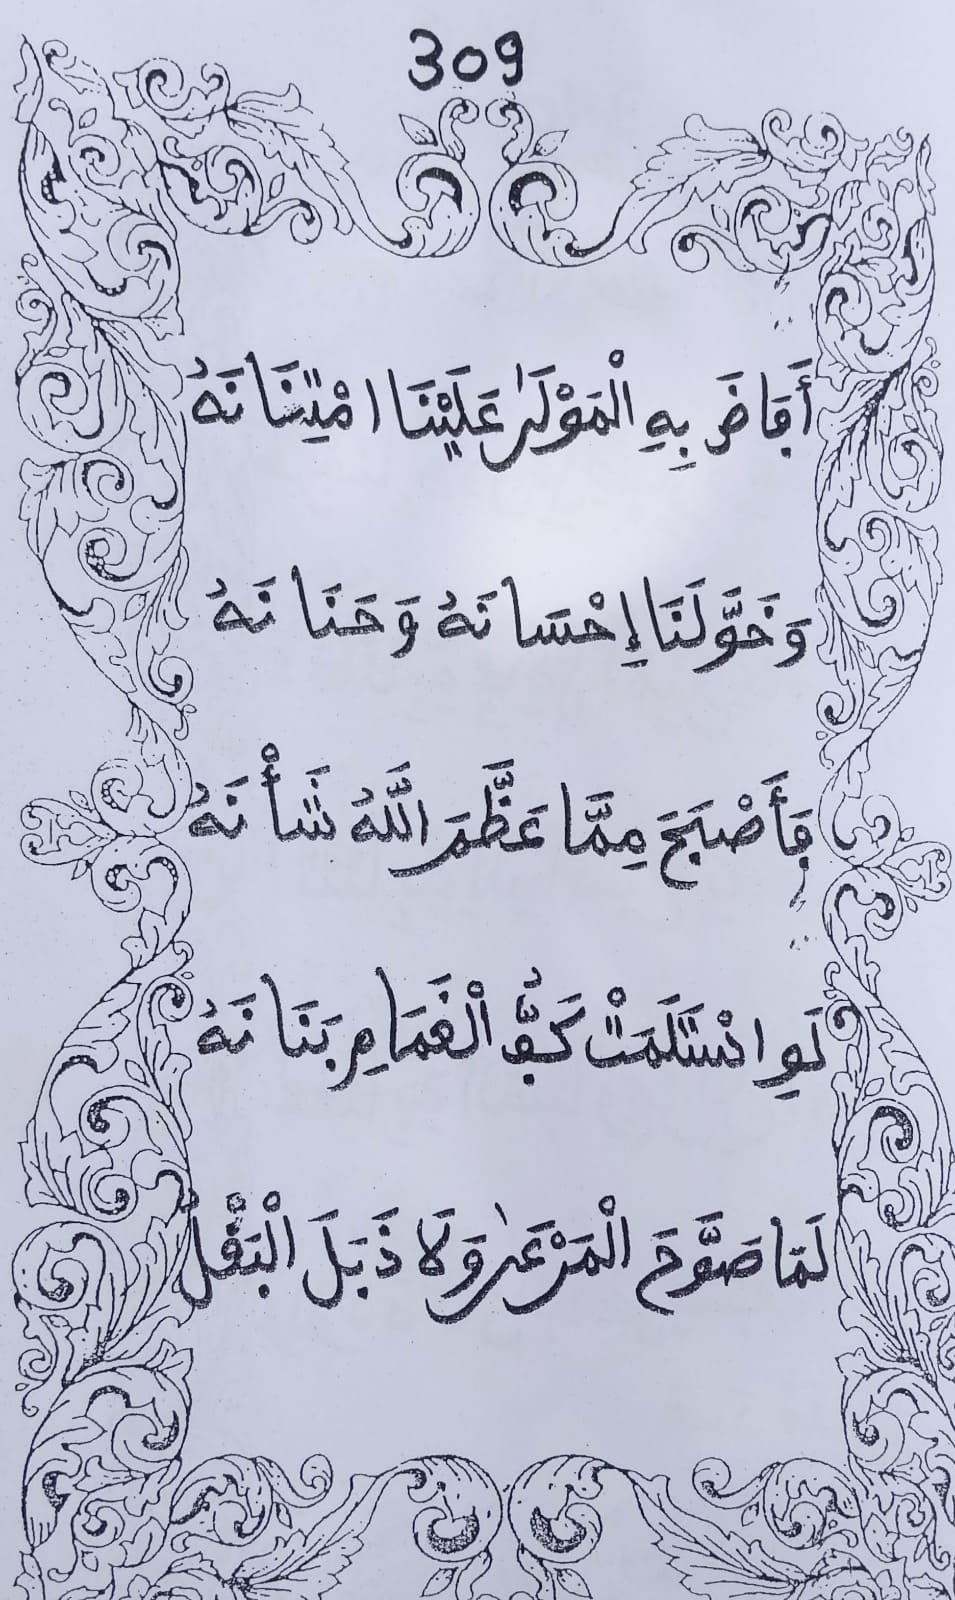 309
أَفَاضَ بِهِ الْمَوْلَىٰ عَلَيْنَا امْتِنَانَهُ
وَخَوَّلَنَا إِحْسَانَهُ وَحَنَانَهُ
فَأَصْبَحَ مِمَّا عَظَّمَ اللَّهُ شَأْنَهُ
لَوِ اسْتَلَمَتْ كَفُّ الْغَمَامِ بَنَانَهُ
لَمَا صَوَّحَ الْمَرْعَىٰ وَلَا ذَبَلَ الْبَقْلُ